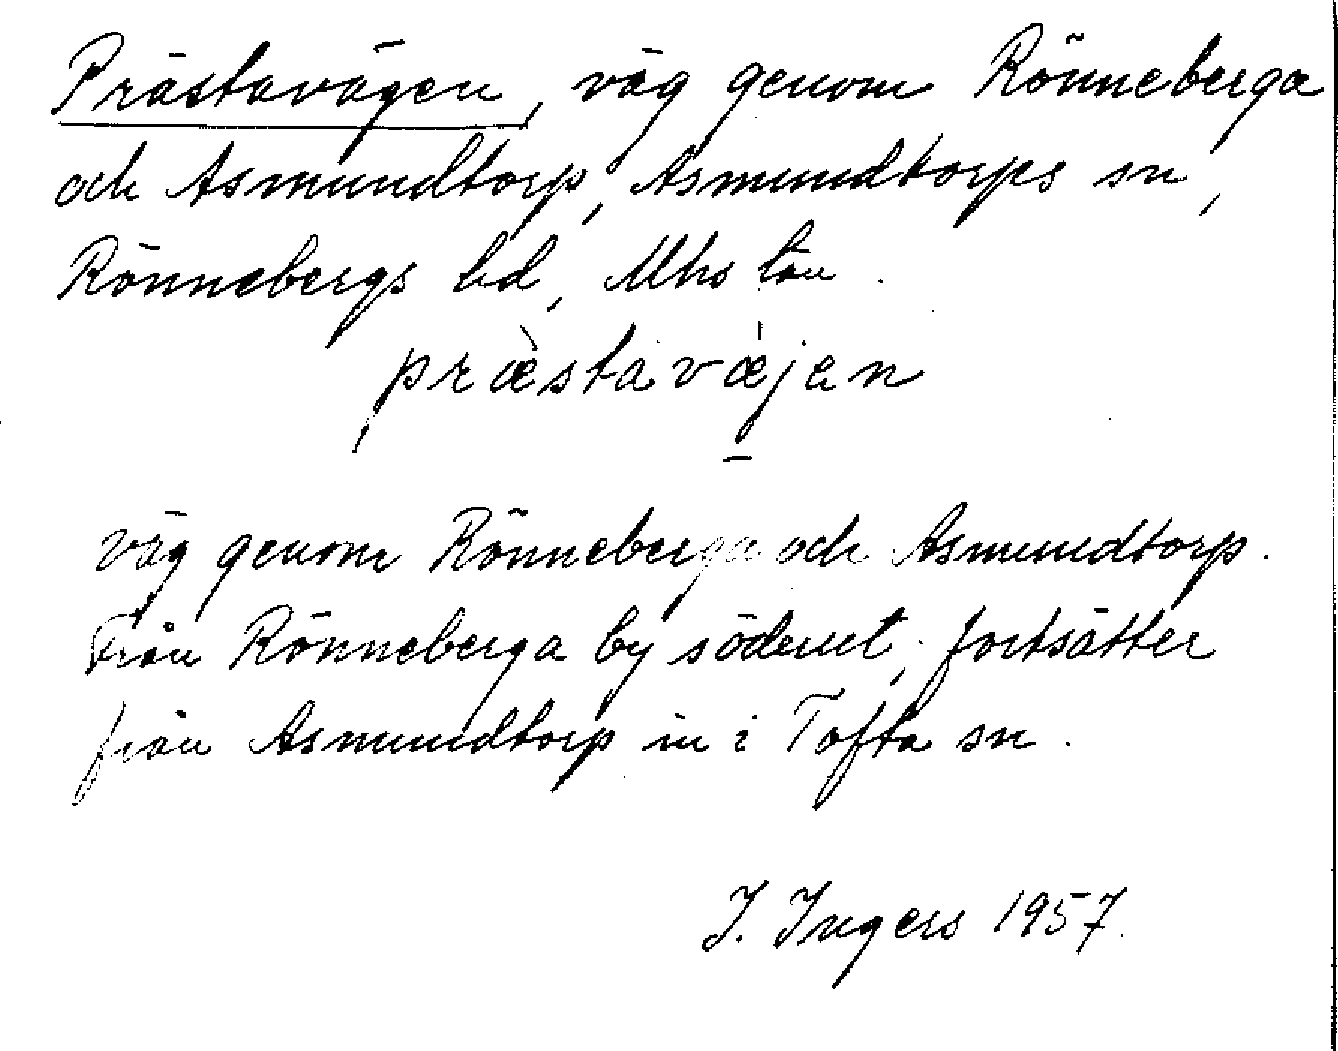 Prästavägen, väg genom Rönneberga
och Asmundtorp, Asmundtorps sn,
Rönnebergs hd, Mhs län.
præ̀stavæ̍jen
väg genom Rönneberga och Asmundtorp.
Från Rönneberga by söderut, fortsätter
från Asmundtorp in i Tofta sn.
I. Ingers 1957.